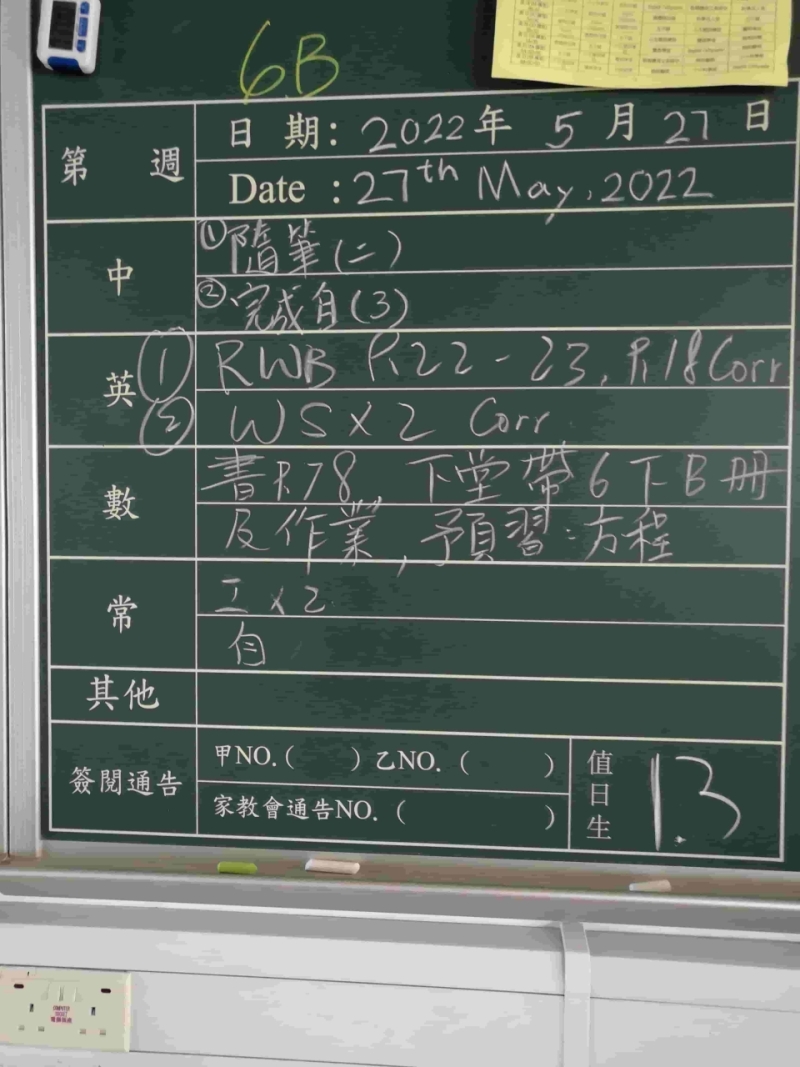 6B
第 週
日 期: 2022年 5月27日
Date : 27th May, 2022
中
①隨筆(二)
②完成自(3)
英
① RWB P.22-23, P.18 Corr
② WS x 2 Corr
數
書P.78 下堂帶6下B冊
及作業, 預習:方程
常
工 x 2
自
其他
簽閱通告
甲NO.( ) 乙NO. ( )
家教會通告NO. ( )
值日生
1.3